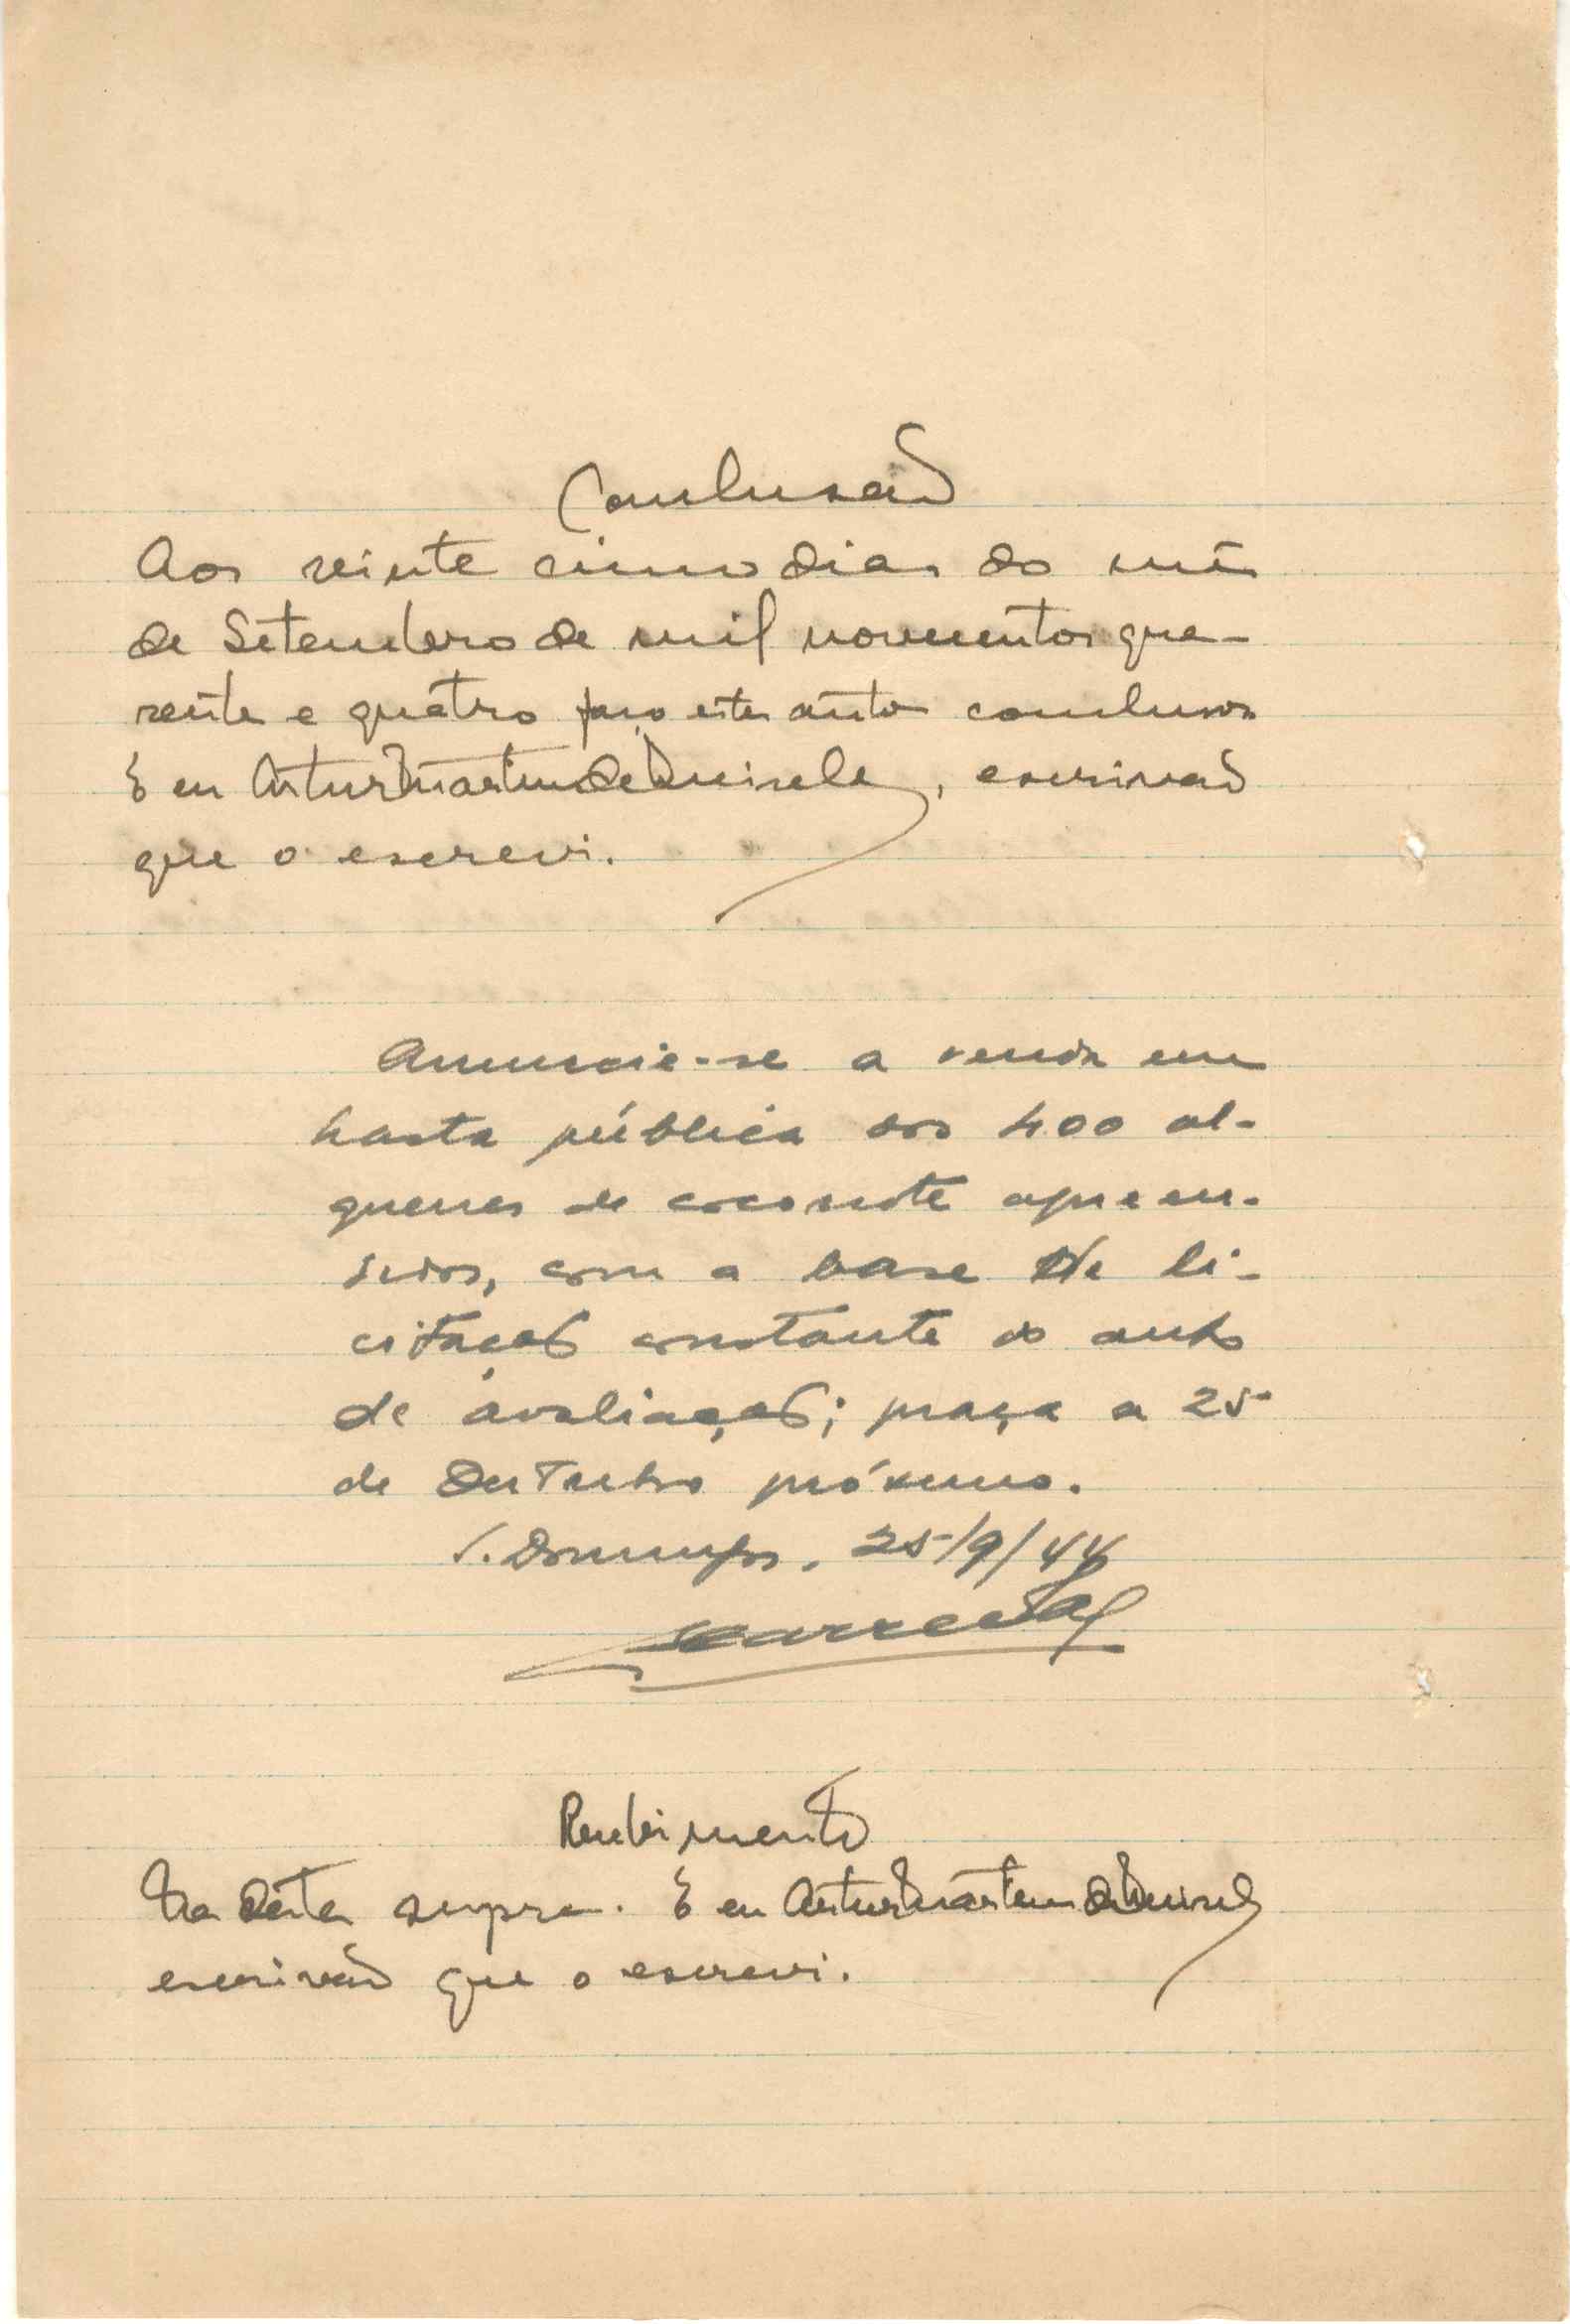 Conclusão
Aos vinte cinco dias do mês
de Setembro de mil novecentos qua-
renta e quatro faço estes autos conclusos
E eu Artur Martins de , escrivão
que o escrevi.
Anuncie-se a venda em
hasta pública dos 400 al-
queires de coconote apreen-
didos, com a base de li-
citação constante do auto
de avaliação; praça a 25
de Outubro próximo.
S. Domingos, 25/9/44
Recebimento
Na data supra. E eu Artur Martins de
escrivão que o escrevi.